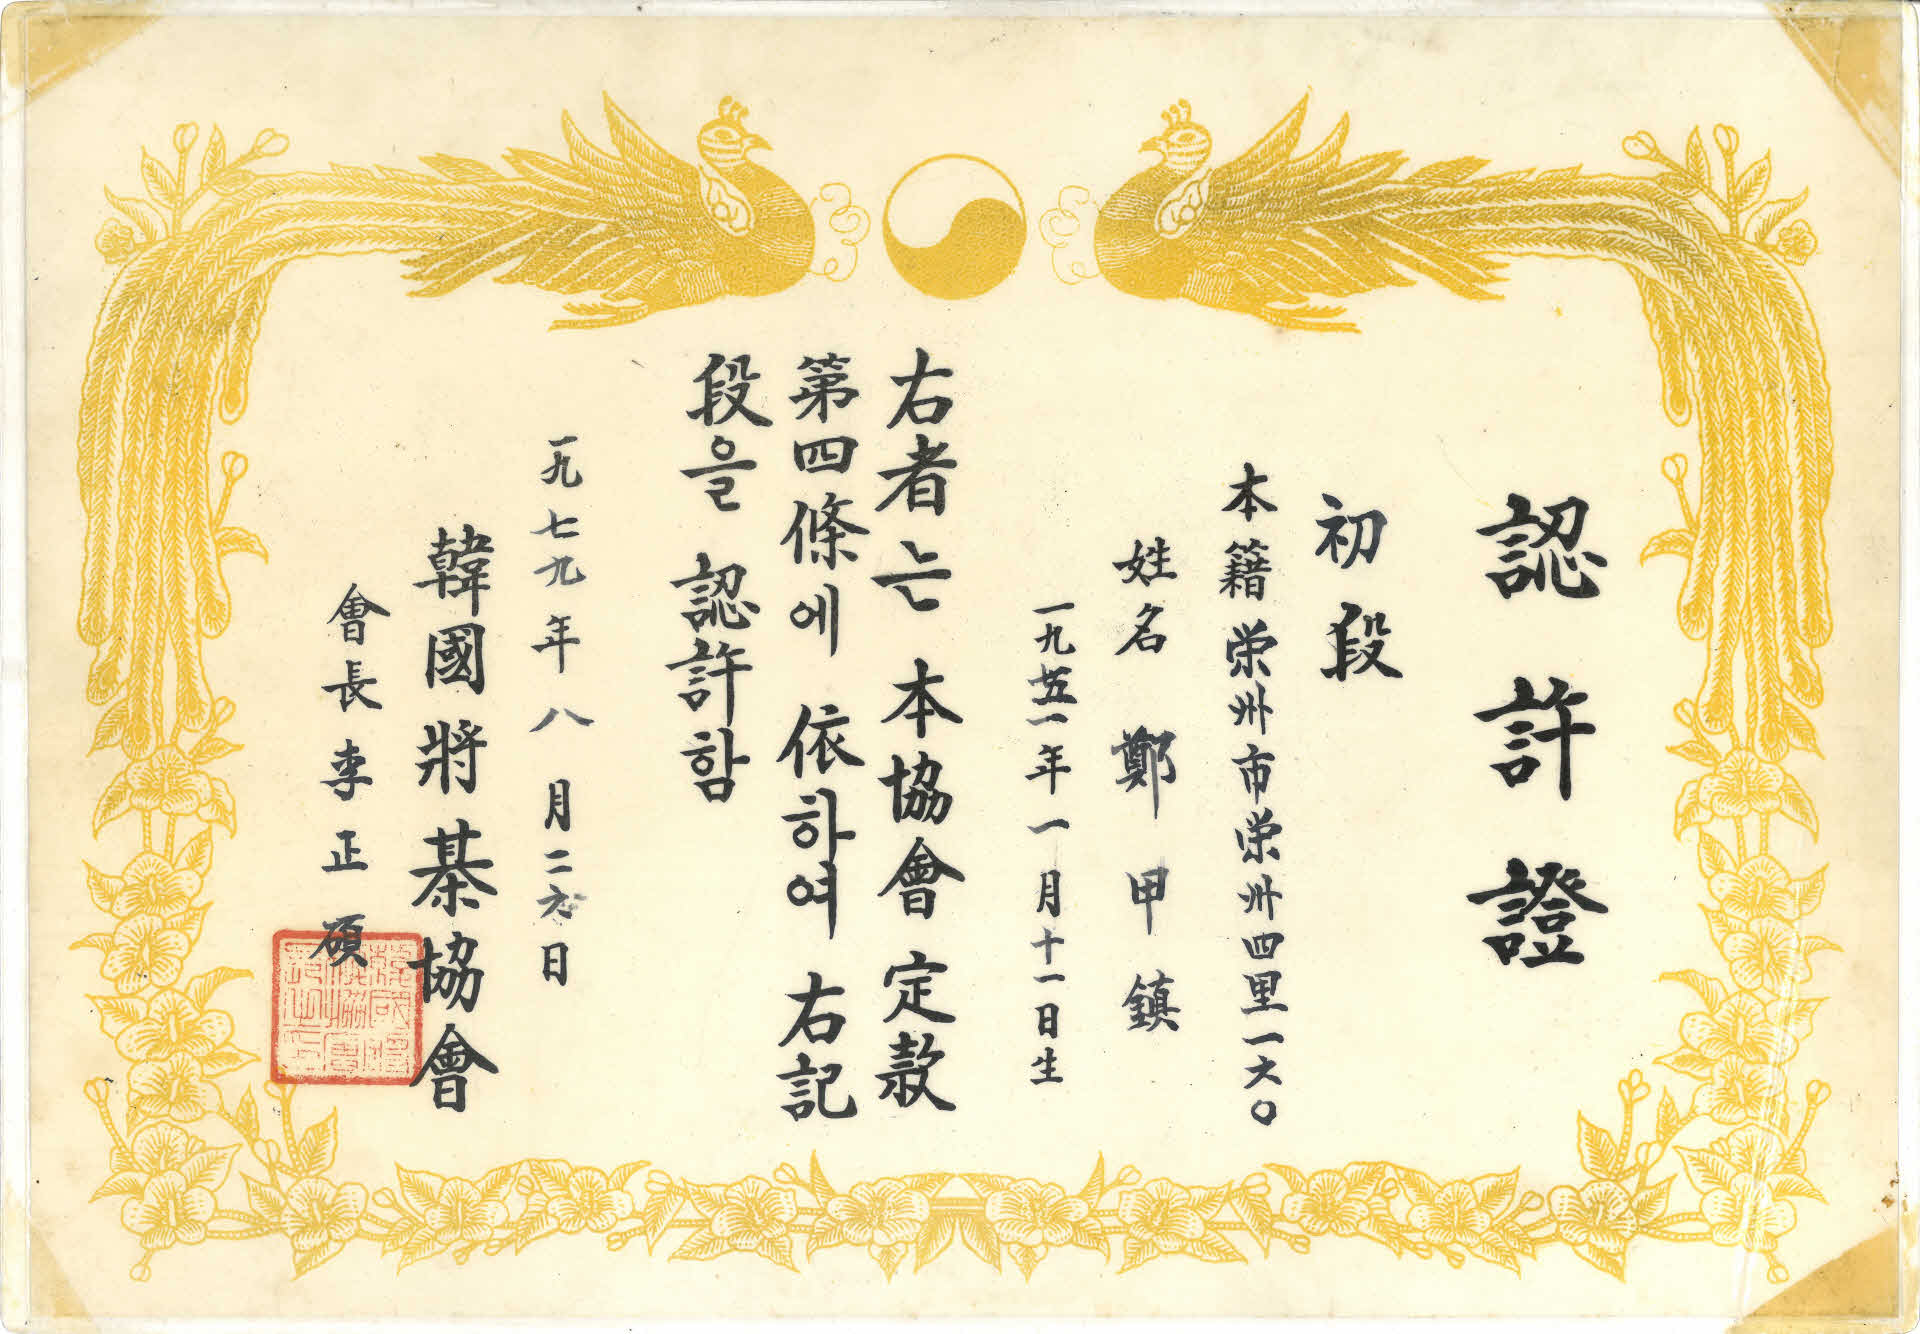 認許證
初段
本籍 栄州市栄州四里一六〇
姓名 鄭甲鎮
一九五一年一月十一日生
右者는 本協會 定款
第四條에 依하여 右記
段을 認許함
一九七九年 八月二六日
韓國將棊協會
會長 李正碩